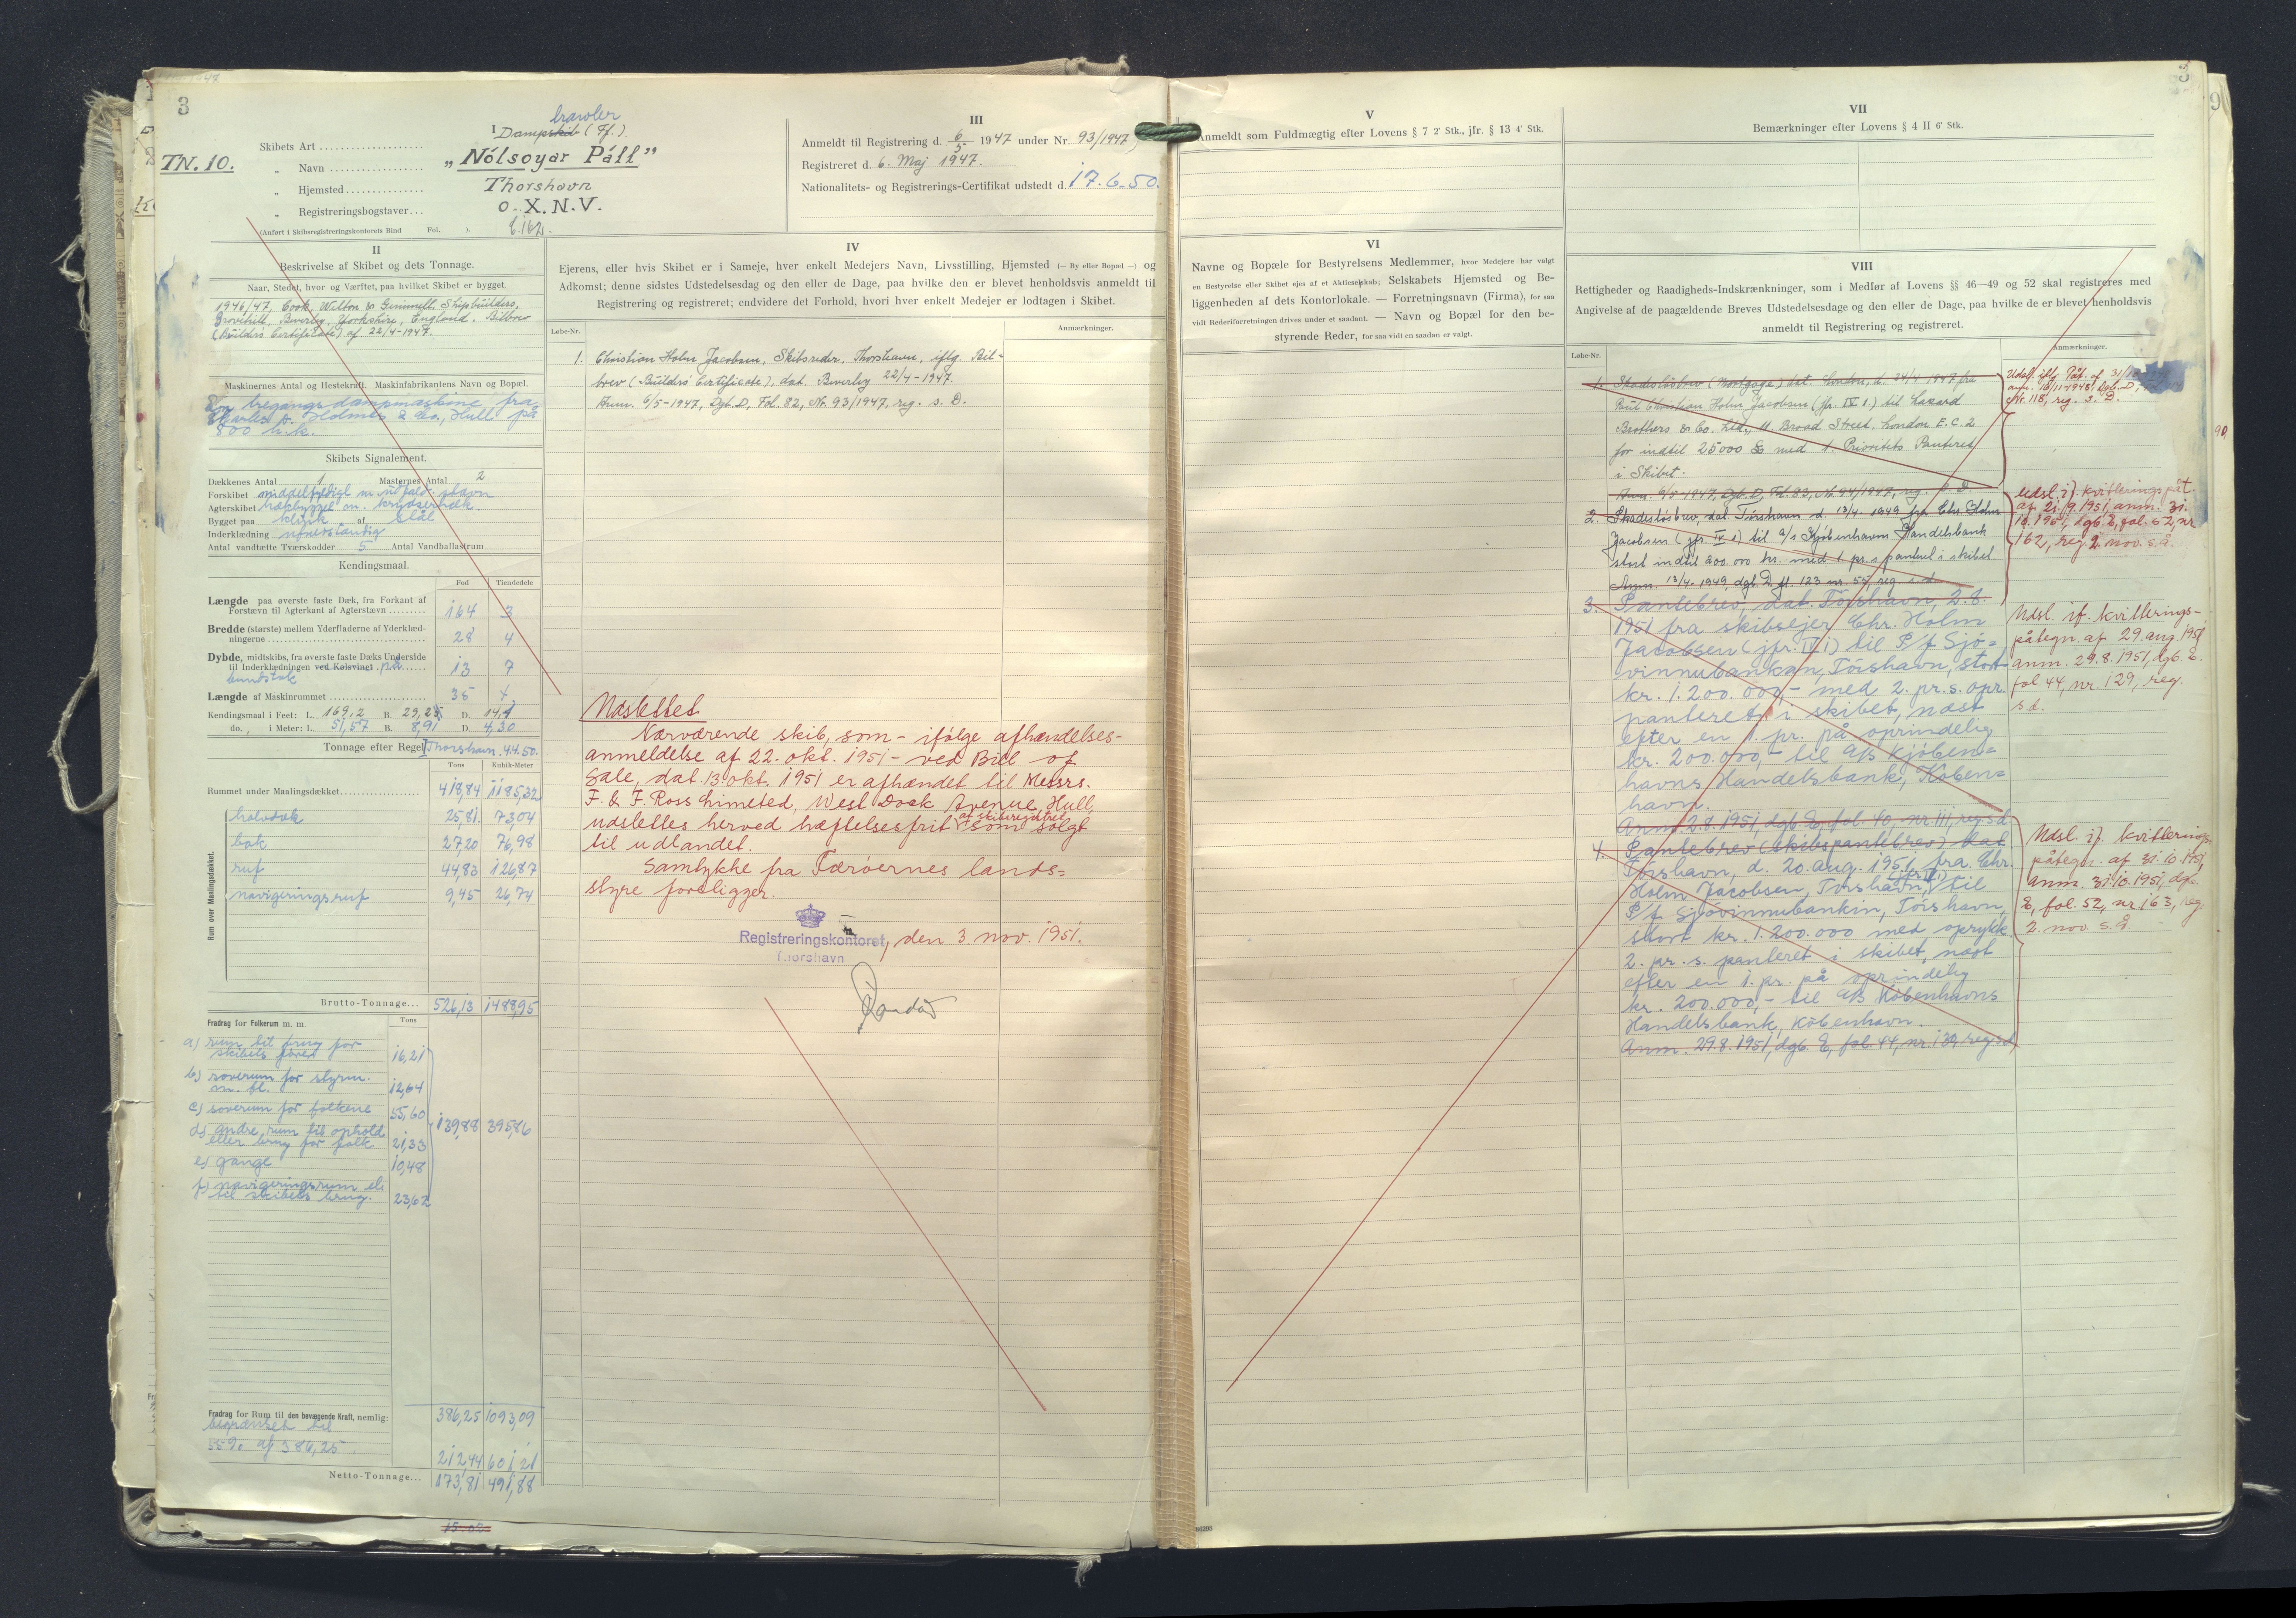 3
TN. 10.
I
trawler
Dampskib (Ff.).
Skibets Art
„ Navn „Nólsoyar Páll"
„ Hjemsted Thorshavn
„ Registreringsbogstaver O.X.N.V.
(Anført i Skibsregistreringskontorets Bind Fol. ).
II
Beskrivelse af Skibet og dets Tonnage.
Naar, Stedet, hvor og Værftet, paa hvilket Skibet er bygget.
1946/47, Cook, Wilton & Gemmell, Shipbuilders,
Grovehill, Beverley, Yorkshire, England. Bilbrev
(Builders Certificate) af 22/4-1947.
Maskinernes Antal og Hestekraft. Maskinfabrikantens Navn og Bopæl.
En tregangs dampmaskine fra
Charles D. Holmes & Co., Hull på
800 h.k.
Skibets Signalement.
Dækkenes Antal 1 Masternes Antal 2
Forskibet middelfyldigt m. udfald. stævn
Agterskibet hækbygget m. krydserhæk.
Bygget paa klink af stål
Inderklædning ufuldstændig
Antal vandtætte Tværskodder 5 Antal Vandballastrum
Kendingsmaal.
Fod Tiendedele
Længde paa øverste faste Dæk, fra Forkant af
Forstævn til Agterkant af Agterstævn 164 3
Bredde (største) mellem Yderfladerne af Yderklæd-
ningerne 28 4
Dybde, midtskibs, fra øverste faste Dæks Underside
til Inderklædningen ved Kølsvinet på 13 7
bundstok
Længde af Maskinrummet 35 4
Kendingsmaal i Feet: L. 169,2 B. 29,25 D. 14,1
do. , i Meter: L. 51,57 B. 8,91 D. 4,30
Tonnage efter Regel I Thorshavn. 4.4.50.
Tons Kubik-Meter
Rummet under Maalingsdækket 418,84 1185,32
Rum over Maalingsdækket.
halvdæk 25,81 73,04
bak 27,20 76,98
ruf 44,83 126,87
navigeringsruf 9,45 26,74
Brutto-Tonnage 526,13 1488,95
Fradrag for Folkerum m. m. Tons
a) rum til brug for
skibets fører 16,21
b) soverum for styrm.
m. fl. 12,64
c) soverum for folkene 55,60
d) andre rum til ophold
eller brug for folk 21,33
139,88 395,86
e) gange 10,48
f) navigeringsrum etc
til skibets brug. 23,62
386,25 1093,09
Fradrag for Rum til den bevægende Kraft, nemlig:
begrænset til
55% af 386,25.
212,44 601,21
Netto-Tonnage 173,81 491,88
III
Anmeldt til Registrering d. 6/5 1947 under Nr. 93/1947,
Registreret d. 6. Maj 1947.
Nationalitets- og Registrerings-Certifikat udstedt d. 17.6.50.
IV
Ejerens, eller hvis Skibet er i Sameje, hver enkelt Medejers Navn, Livsstilling, Hjemsted (— By eller Bopæl —) og
Adkomst; denne sidstes Udstedelsesdag og den eller de Dage, paa hvilke den er blevet henholdsvis anmeldt til
Registrering og registreret; endvidere det Forhold, hvori hver enkelt Medejer er lodtagen i Skibet.
Løbe-Nr. Anmærkninger.
1. Christian Holm Jacobsen, Skibsreder, Thorshavn, iflg. Bil=
brev (Builders Certificate), dat. Beverley 22/4-1947.
Anm. 6/5-1947, Dgb. D, Fol. 82, Nr. 93/1947, reg. s. D.
Udslettet
Nærværende skib, som - ifølge afhændelses-
anmeldelse af 22. okt. 1951 - ved Bill of
Sale, dat. 13. okt. 1951 er afhændet til Messrs.
F. & F. Ross Limeted, West Dock Avenue, Hull,
af skibsregistret
udslettes herved hæftelsesfrit som solgt
til udlandet.
Samtykke fra Færøernes lands=
styre foreligger.
Registreringskontoret, den 3. nov. 1951.
Thorshavn
V
Anmeldt som Fuldmægtig efter Lovens § 7 2' Stk., jfr. § 13 4' Stk.
VI
Navne og Bopæle for Bestyrelsens Medlemmer, hvor Medejere har valgt
en Bestyrelse eller Skibet ejes af et Aktieselskab; Selskabets Hjemsted og Be-
liggenheden af dets Kontorlokale. — Forretningsnavn (Firma), for saa
vidt Rederiforretningen drives under et saadant. — Navn og Bopæl for den be-
styrende Reder, for saa vidt en saadan er valgt.
VII
Bemærkninger efter Lovens § 4 II 6' Stk.
VIII
Rettigheder og Raadigheds-Indskrænkninger, som i Medfør af Lovens §§ 46—49 og 52 skal registreres med
Angivelse af de paagældende Breves Udstedelsesdage og den eller de Dage, paa hvilke de er blevet henholdsvis
anmeldt til Registrering og registreret.
Løbe-Nr. Anmærkninger.
1. Skadesløsbrev (Mortgage) dat. London, d. 24/4 1947 fra
Poul Christian Holm Jacobsen (jfr. IV 1.) til Lazard
Brothers & Co. Ltd., 11. Broad Street, London E.C.2
for indtil 25000 £ med 1. Prioritets Panteret
i Skibet.
Anm. 6/5-1947, Dgb. D, Fol. 83, Nr. 94/1947, reg. s. D.
Udsl. iflg. Påt. af 31/10
anm. 16/11-1948, Dgb. D,
Nr. 118, reg. s. D.
2. Skadesløsbrev, dat. Tórshavn d. 13/4. 1949 fra Chr. Holm
Jacobsen (jfr. IV 1) til A/S Kjöbenhavns Handelsbank
stort indtil 200.000 kr. med 1. pr. s panteret i skibet
Anm. 13/4. 1949, dgb. D fl. 123 nr. 55, reg s.d.
udsl. if. kvitteringspåt.
af 21.9.1951, anm. 31.
10.1951, dgb. E, fol. 52, nr.
162, reg. 2. nov. s.å.
3. Pantebrev, dat. Tórshavn, 2.8.
1951 fra skibsejer Chr. Holm
Jacobsen (jfr. IV 1) til P/f Sjó=
vinnubankan, Tórshavn, stort
kr. 1.200.000,- med 2. pr. s. opr.
panteret i skibet, næst
efter en 1. pr. på oprindelig
kr. 200.000,- til A/S Kjøben=
havns Handelsbank, Köben=
havn.
Anm. 2.8.1951, dgb. E, fol. 40, nr. 111, reg s.d.
Udsl. if. kvitterings-
påtegn. af 29. aug. 1951
anm. 29.8.1951, dgb. E.
fol. 44, nr. 129, reg.
s.d.
4. Pantebrev (skibspantebrev) dat.
Tórshavn, d. 20. aug. 1951 fra Chr.
(jfr. IV 1)
Holm Jacobsen, Tórshavn, til
P/f Sjóvinnubankin, Tórshavn,
stort kr. 1.200.000 med oprykk.
2. pr. s. panteret i skibet, næst
efter en 1. pr. på oprindelig
kr. 200.000,- til A/S Köbenhavns
Handelsbank, Köbenhavn.
Anm. 29.8.1951, dgb. E, fol. 44, nr. 130, reg s.d.
Udsl. if. kvitterings
påtegn. af 31.10.1951,
anm. 31.10.1951, dgb.
E, fol. 52, nr. 163, reg.
2. nov. s.å.